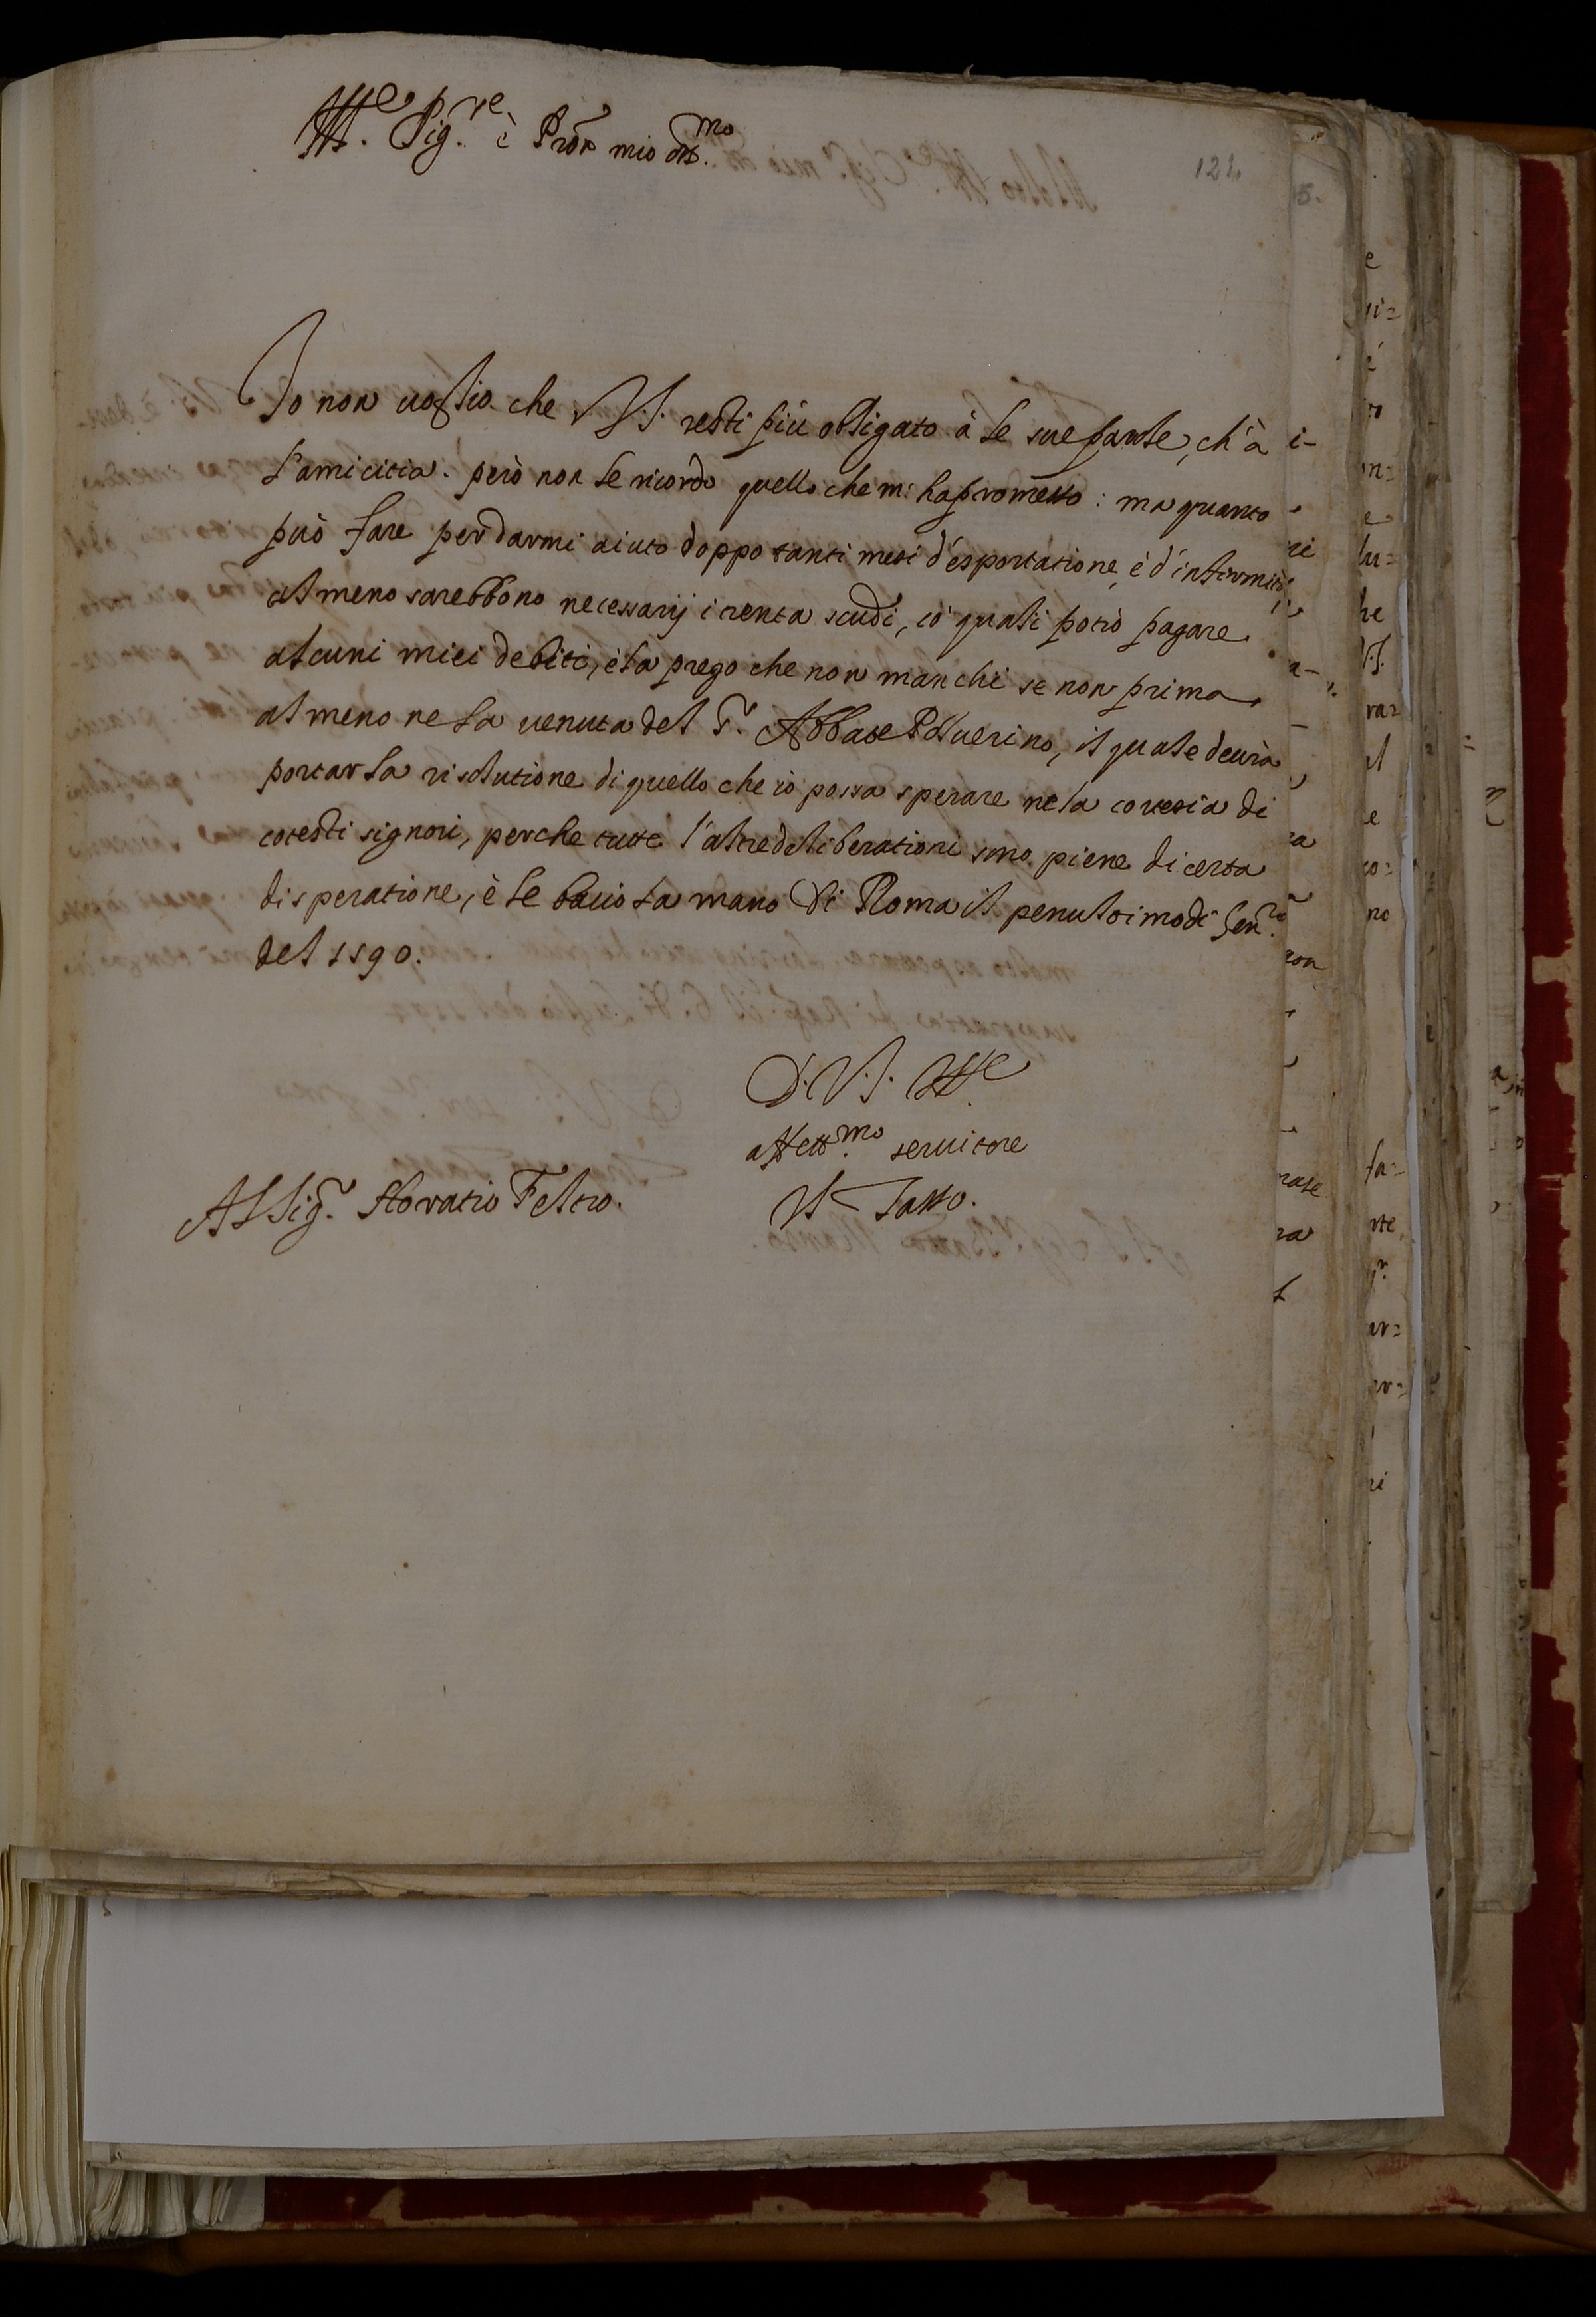 Ill.e Sig.re è Pron mio oss.mo
124
Io non uoglio che V.S. resti più obligato à le sue parole, ch'à
l'amicitia. però non le ricordo quello che mi ha promesso: ma quanto
può fare per darmi aiuto doppo tanti mesi d'esportatione, è d'infirmità;
almeno sarebbono necessarij i trenta scudi, co' quali potrò pagare
alcuni miei debiti, è la prego che non manchi se non prima,
almeno ne la uenuta del S.r Abbate Poluerino, il quale deurà
portar la risolutione di quello che io possa sperare ne la cortesia di
cotesti signori, perche tutte l'altre deliberationi sono piene di certa
disperatione, è le bacio la mano Di Roma il penultimo di Gen.ro
del 1590.
D. V. S. Ill.e
affett.mo seruitore
Il Tasso.
Al Sig.r Horatio Feltro.